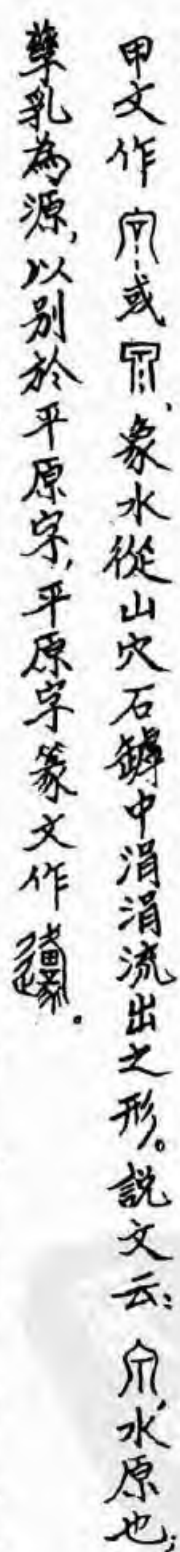 甲文作或、象水從山穴石罅中涓涓流出之形。說文云：，水原也；
孳乳為源，以別於平原字，平原字篆文作。